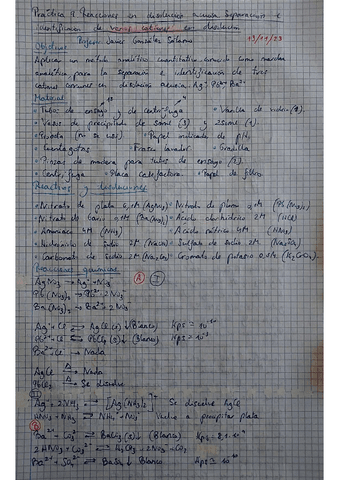 Práctica 9 Reacciones en disolución acuosa Separación e
identificación de varios cationes en disolución
Profesor: Javier González 13/11/23
Objetivo
Aplicar un método analítico cuantitativo conocido como marcha
analítica para la separación e identificación de tres
cationes comunes en disolución acuosa, Ag⁺ Pb²⁺ Ba²⁺
Material
• Tubos de ensayo y de centrífuga • Varilla de vidrio (1).
• Vasos de precipitado de 50ml (3) y 250ml (1).
(no se usa) • Papel indicador de pH
• Cuentagotas • Frasco lavador • Gradilla
• Pinzas de madera para tubos de ensayo (1).
• Centrífuga • Placa calefactora. • Papel de filtro.
Reactivos y disoluciones
• Nitrato de plata 0,1M (AgNO₃) • Nitrato de plomo 0,1M (Pb(NO₃)₂)
• Nitrato de bario 0,1M (Ba(NO₃)₂) • Ácido clorhídrico 2M (HCl)
• Amoniaco 4M (NH₃) • Ácido nítrico 4M (HNO₃)
• Hidróxido de sodio 2M (NaOH) • Sulfato de sodio 2M (Na₂SO₄)
• Carbonato de sodio 2M (Na₂CO₃) • Cromato de potasio (K₂CrO₄).
Reacciones químicas
AgNO₃ → Ag⁺ + NO₃⁻
Pb(NO₃)₂ → Pb²⁺ 2NO₃⁻
Ba(NO₃)₂ → Ba²⁺ 2NO₃⁻
Ag⁺ + Cl⁻ ⇌ AgCl(s)↓ (Blanco) Kps = 10⁻¹⁰
Pb²⁺ Cl⁻ ⇌ PbCl₂(s)↓ (Blanco) Kps = 10⁻⁵
Ba²⁺ Cl⁻ → Nada
AgCl →Δ Nada
PbCl₂ →Δ Se disuelve
Ag⁺ + 2NH₃ ⇌ [Ag(NH₃)₂]⁺ Se disuelve AgCl
HNO₃ + NH₃ ⇌ NH₄⁺ NO₃⁻ Vuelve a precipitar plata
Ba²⁺ CO₃²⁻ ⇌ BaCO₃(s)↓ (Blanco)
2HNO₃ + CO₃²⁻ ⇌ + 2NO₃⁻ + CO₂
Ba²⁺ + SO₄²⁻ ⇌ BaSO₄↓ Blanco Kps ≅ 10⁻¹⁰